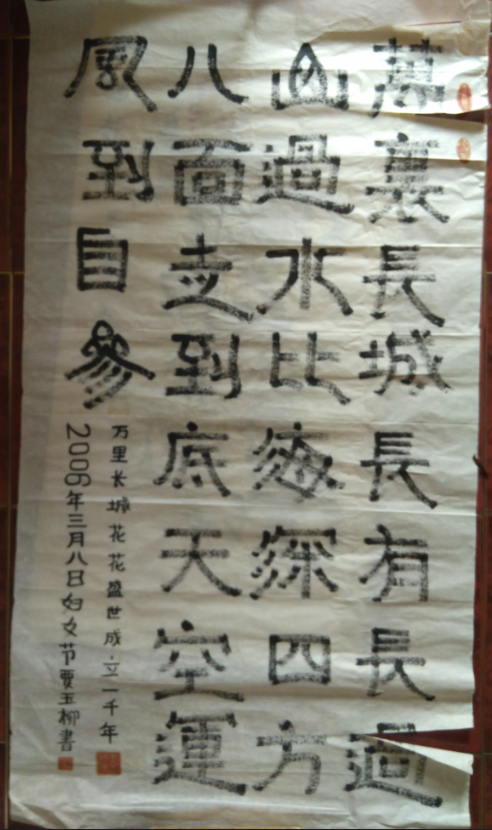 萬裏長城長有長過
山過水比海深四方
八面走到底天空運
風到自參
万里长城花花盛世成立一千年
2006年三月八日妇女节贾玉柳書